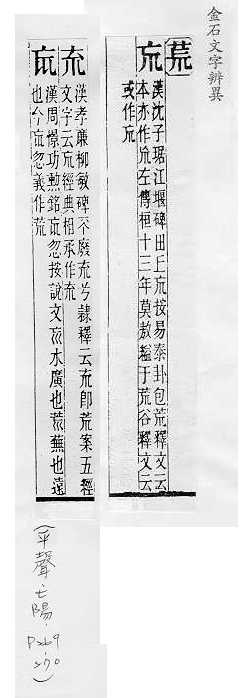 金石文字辨異
荒
巟
漢沈子琚江堰碑田上巟按易泰卦包荒釋文云
本亦作巟左傳桓十三年莫敖縊于荒谷釋文云
或作巟
㐬
漢孝廉柳敏碑不廢㐬兮隸釋云㐬即荒案五經
文字云巟經典相承作㐬
巟
漢周憬功勳銘巟忽按說文巟水廣也荒蕪也遠
也今巟忽義作荒
(平聲七陽, P269-270)